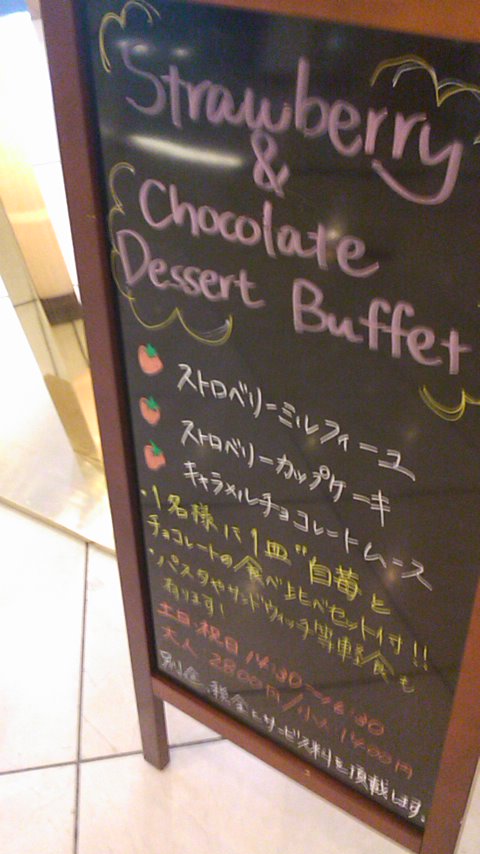 Strawberry
&
Chocolate
Dessert Buffet
ストロベリーミルフィーユ
ストロベリーカップケーキ
キャラメルチョコレートムース
・1名様に1皿"白苺と
チョコレートの食べ比べセット付!!
・パスタやサンドウィッチ等軽食も
有ります!
土日祝日 14:30〜16:30
大人 2800円/小人 1400円
別途、税金とサービス料を頂戴します。